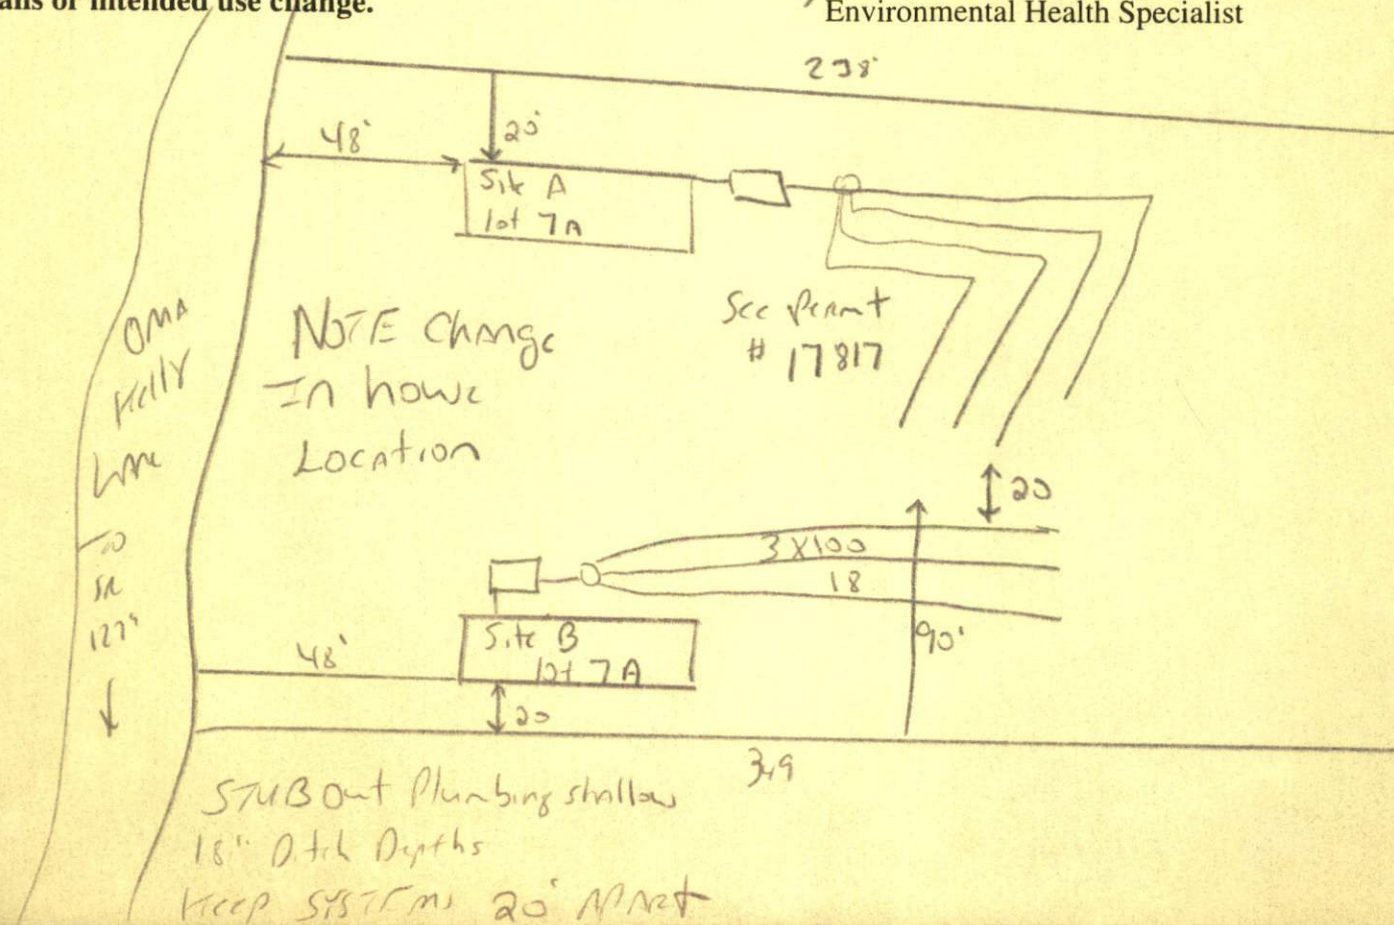 ans or intended use change.
Environmental Health Specialist
238'
48'
20'
Site A
lot 7A
See Permit
# 17817
NOTE Change
In house
Location
OMA
Kelly
Lane
TO
SR
20
3 X 100
18
90'
Site B
lot 7A
48'
20
349
STUB Out Plumbing shallow
18" Ditch Depths
Keep SYSTEMS 20' APART